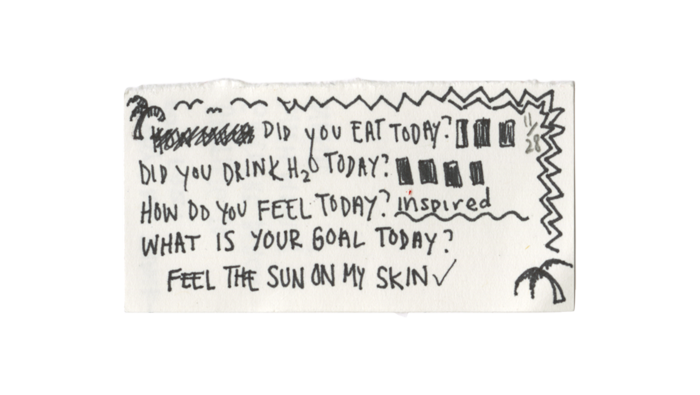 DID YOU EAT TODAY? 11/28
DID YOU DRINK H₂O TODAY?
HOW DO YOU FEEL TODAY? inspired
WHAT IS YOUR GOAL TODAY?
FEEL THE SUN ON MY SKIN ✓